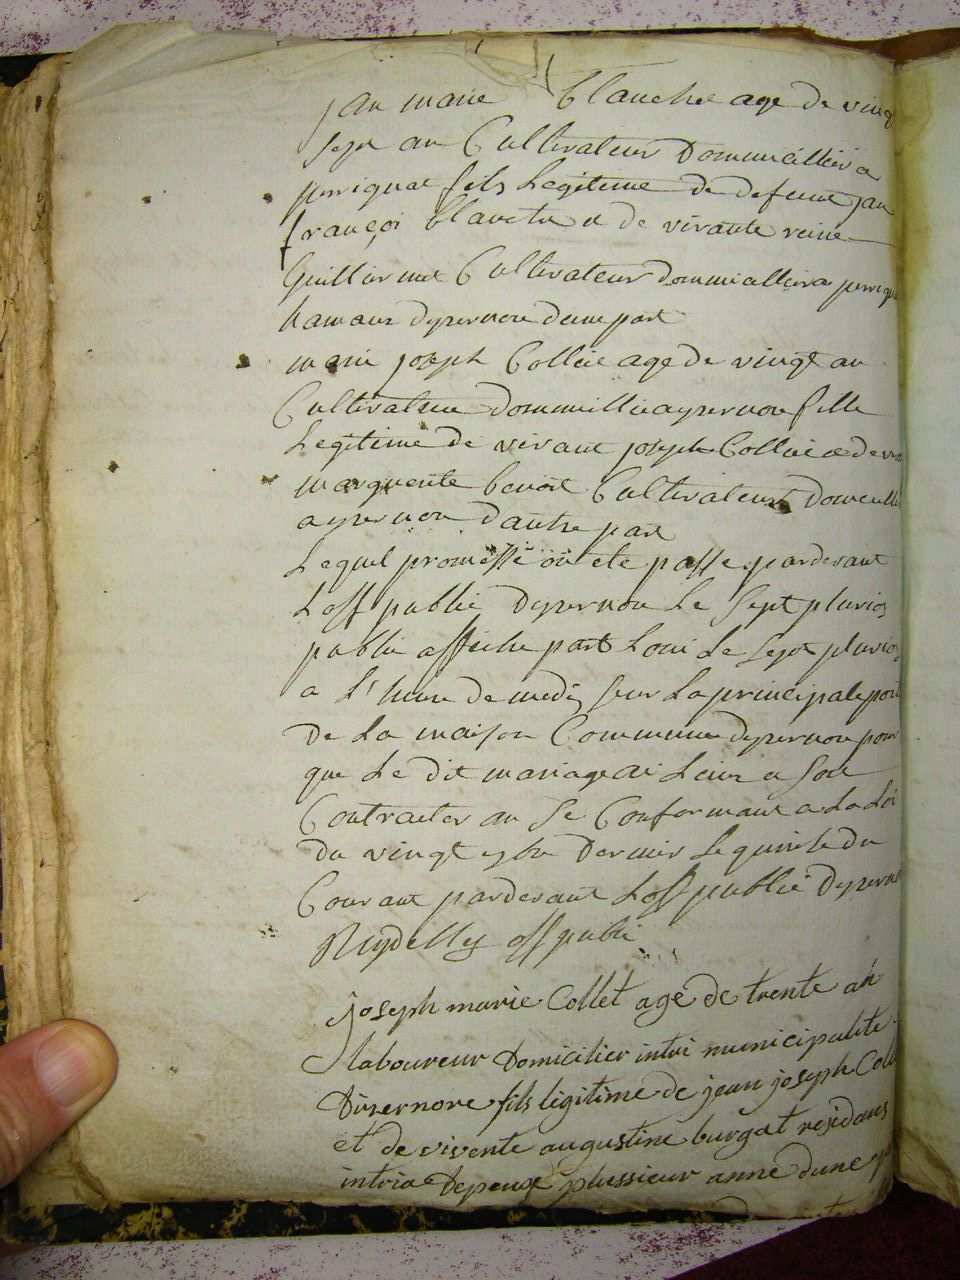 jan marie Blanchet age de vingt
sept an Cultivateur Dommicillier a
perriguat fils Legitime de defeunt jan
françoi Blanchet et de vivante reine
Guillermet Cultivateur dommicillier a perrigua
hamaux dyzernore dune part
marie joseph Collet age de vingt an
Cultivatrice dommeillie a yzernore fille
Legitime de vivant joseph Collet et de
marguerite benoit Cultivateur Domeullie
a yzernore d'autre part
Lequel promesse on ete passe pardevant
Loff public dyzernore Le Sept pluvios
public affiche part Loui Le Sept pluvios
a L'hure de medi Sur La principale port
De La maison Commune dyzernore pour
que Le dit mariage ai Lieux a Soit
Contracter an Se Conformant a La Loi
du vingt 7bre Dernier Le quinte du
Courant pardevant Loff public Dyzernor
Reydelly off publi
joseph marie Collet age de trente an
laboureur Domicilier intri municipalite
Dizernore fils légitime de jean joseph Coll
et de vivente augustine burgat residans
intria Depeuye plussieur anné dune